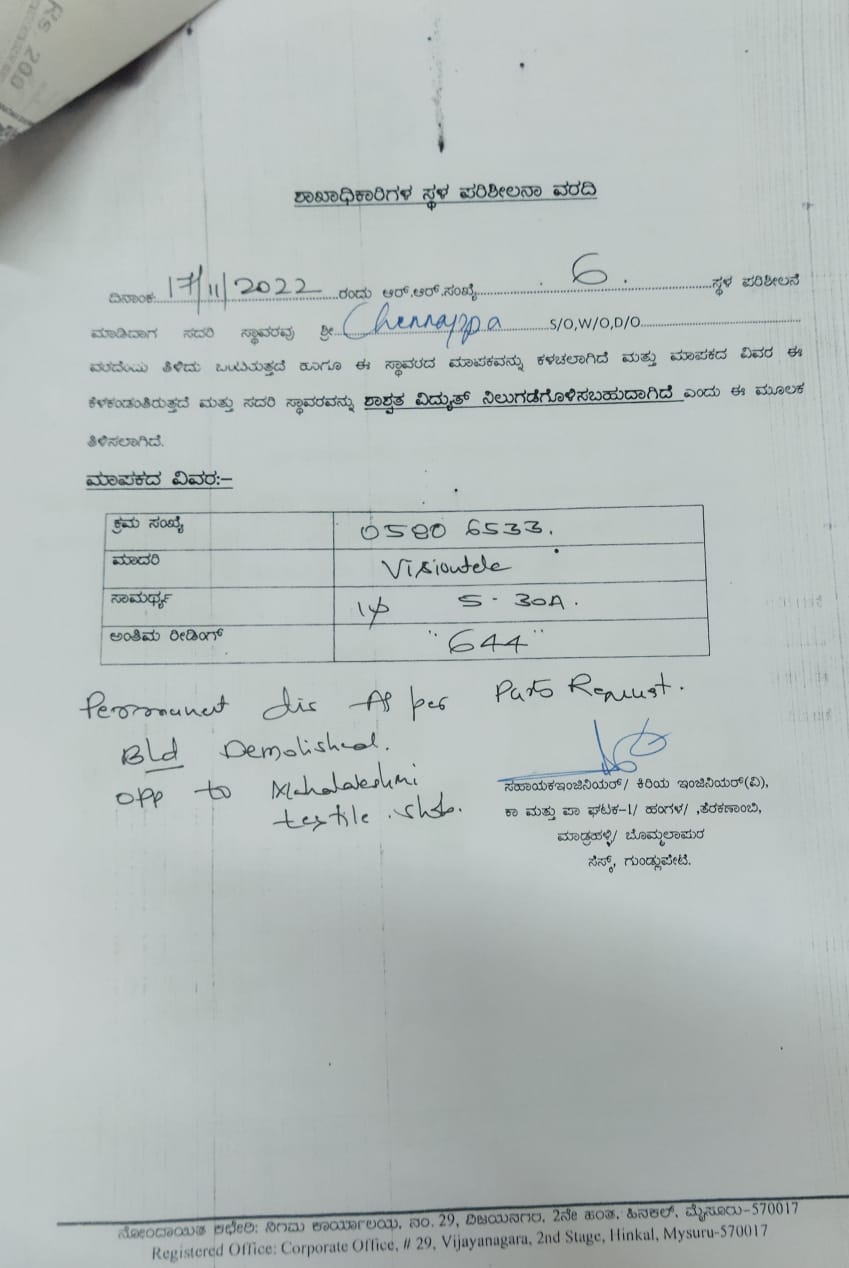 Rs. 200
ಶಾಖಾಧಿಕಾರಿಗಳ ಸ್ಥಳ ಪರಿಶೀಲನಾ ವರದಿ
ದಿನಾಂಕ: 17/11/2022 ರಂದು ಆರ್.ಆರ್.ಸಂಖ್ಯೆ 6. ಸ್ಥಳ ಪರಿಶೀಲನೆ
ಮಾಡಿದಾಗ ಸದರಿ ಸ್ಥಾವರವು ಶ್ರೀ Chennappa S/O,W/O,D/O
ತಿಳಿದು ಬಂದಿರುತ್ತದೆ ಹಾಗೂ ಈ ಸ್ಥಾವರದ ಮಾಪಕವನ್ನು ಕಳಚಲಾಗಿದೆ ಮತ್ತು ಮಾಪಕದ ವಿವರ ಈ
ಕೆಳಕಂಡಂತಿರುತ್ತದೆ ಮತ್ತು ಸದರಿ ಸ್ಥಾವರವನ್ನು ಶಾಶ್ವತ ವಿದ್ಯುತ್ ನಿಲುಗಡೆಗೊಳಿಸಬಹುದಾಗಿದೆ ಎಂದು ಈ ಮೂಲಕ
ತಿಳಿಸಲಾಗಿದೆ.
ಮಾಪಕದ ವಿವರ:-
ಕ್ರಮ ಸಂಖ್ಯೆ 0580 6533.
ಮಾದರಿ Visiontele
ಸಾಮರ್ಥ್ಯ 1φ 5-30A.
ಅಂತಿಮ ರೀಡಿಂಗ್ "644"
Permanent dis As per Party Request.
Bld Demolished.
opp to Mahalakshmi
textile
ಸಹಾಯಕಇಂಜಿನಿಯರ್/ ಕಿರಿಯ ಇಂಜಿನಿಯರ್(ವಿ),
ಕಾ ಮತ್ತು ಪಾ ಘಟಕ-1/ ಹಂಗಳ/ ,ತೆರಕಣಾಂಬಿ,
ಮಾಡ್ರಹಳ್ಳಿ/ ಬೊಮ್ಮಲಾಪುರ
ಸೆಸ್ಕ್, ಗುಂಡ್ಲುಪೇಟೆ.
ನೋಂದಾಯಿತ ಕಛೇರಿ: ನಿಗಮ ಕಾರ್ಯಾಲಯ, ನಂ. 29, ವಿಜಯನಗರ, 2ನೇ ಹಂತ, ಹಿನಕಲ್, ಮೈಸೂರು-570017
Registered Office: Corporate Office, # 29, Vijayanagara, 2nd Stage, Hinkal, Mysuru-570017